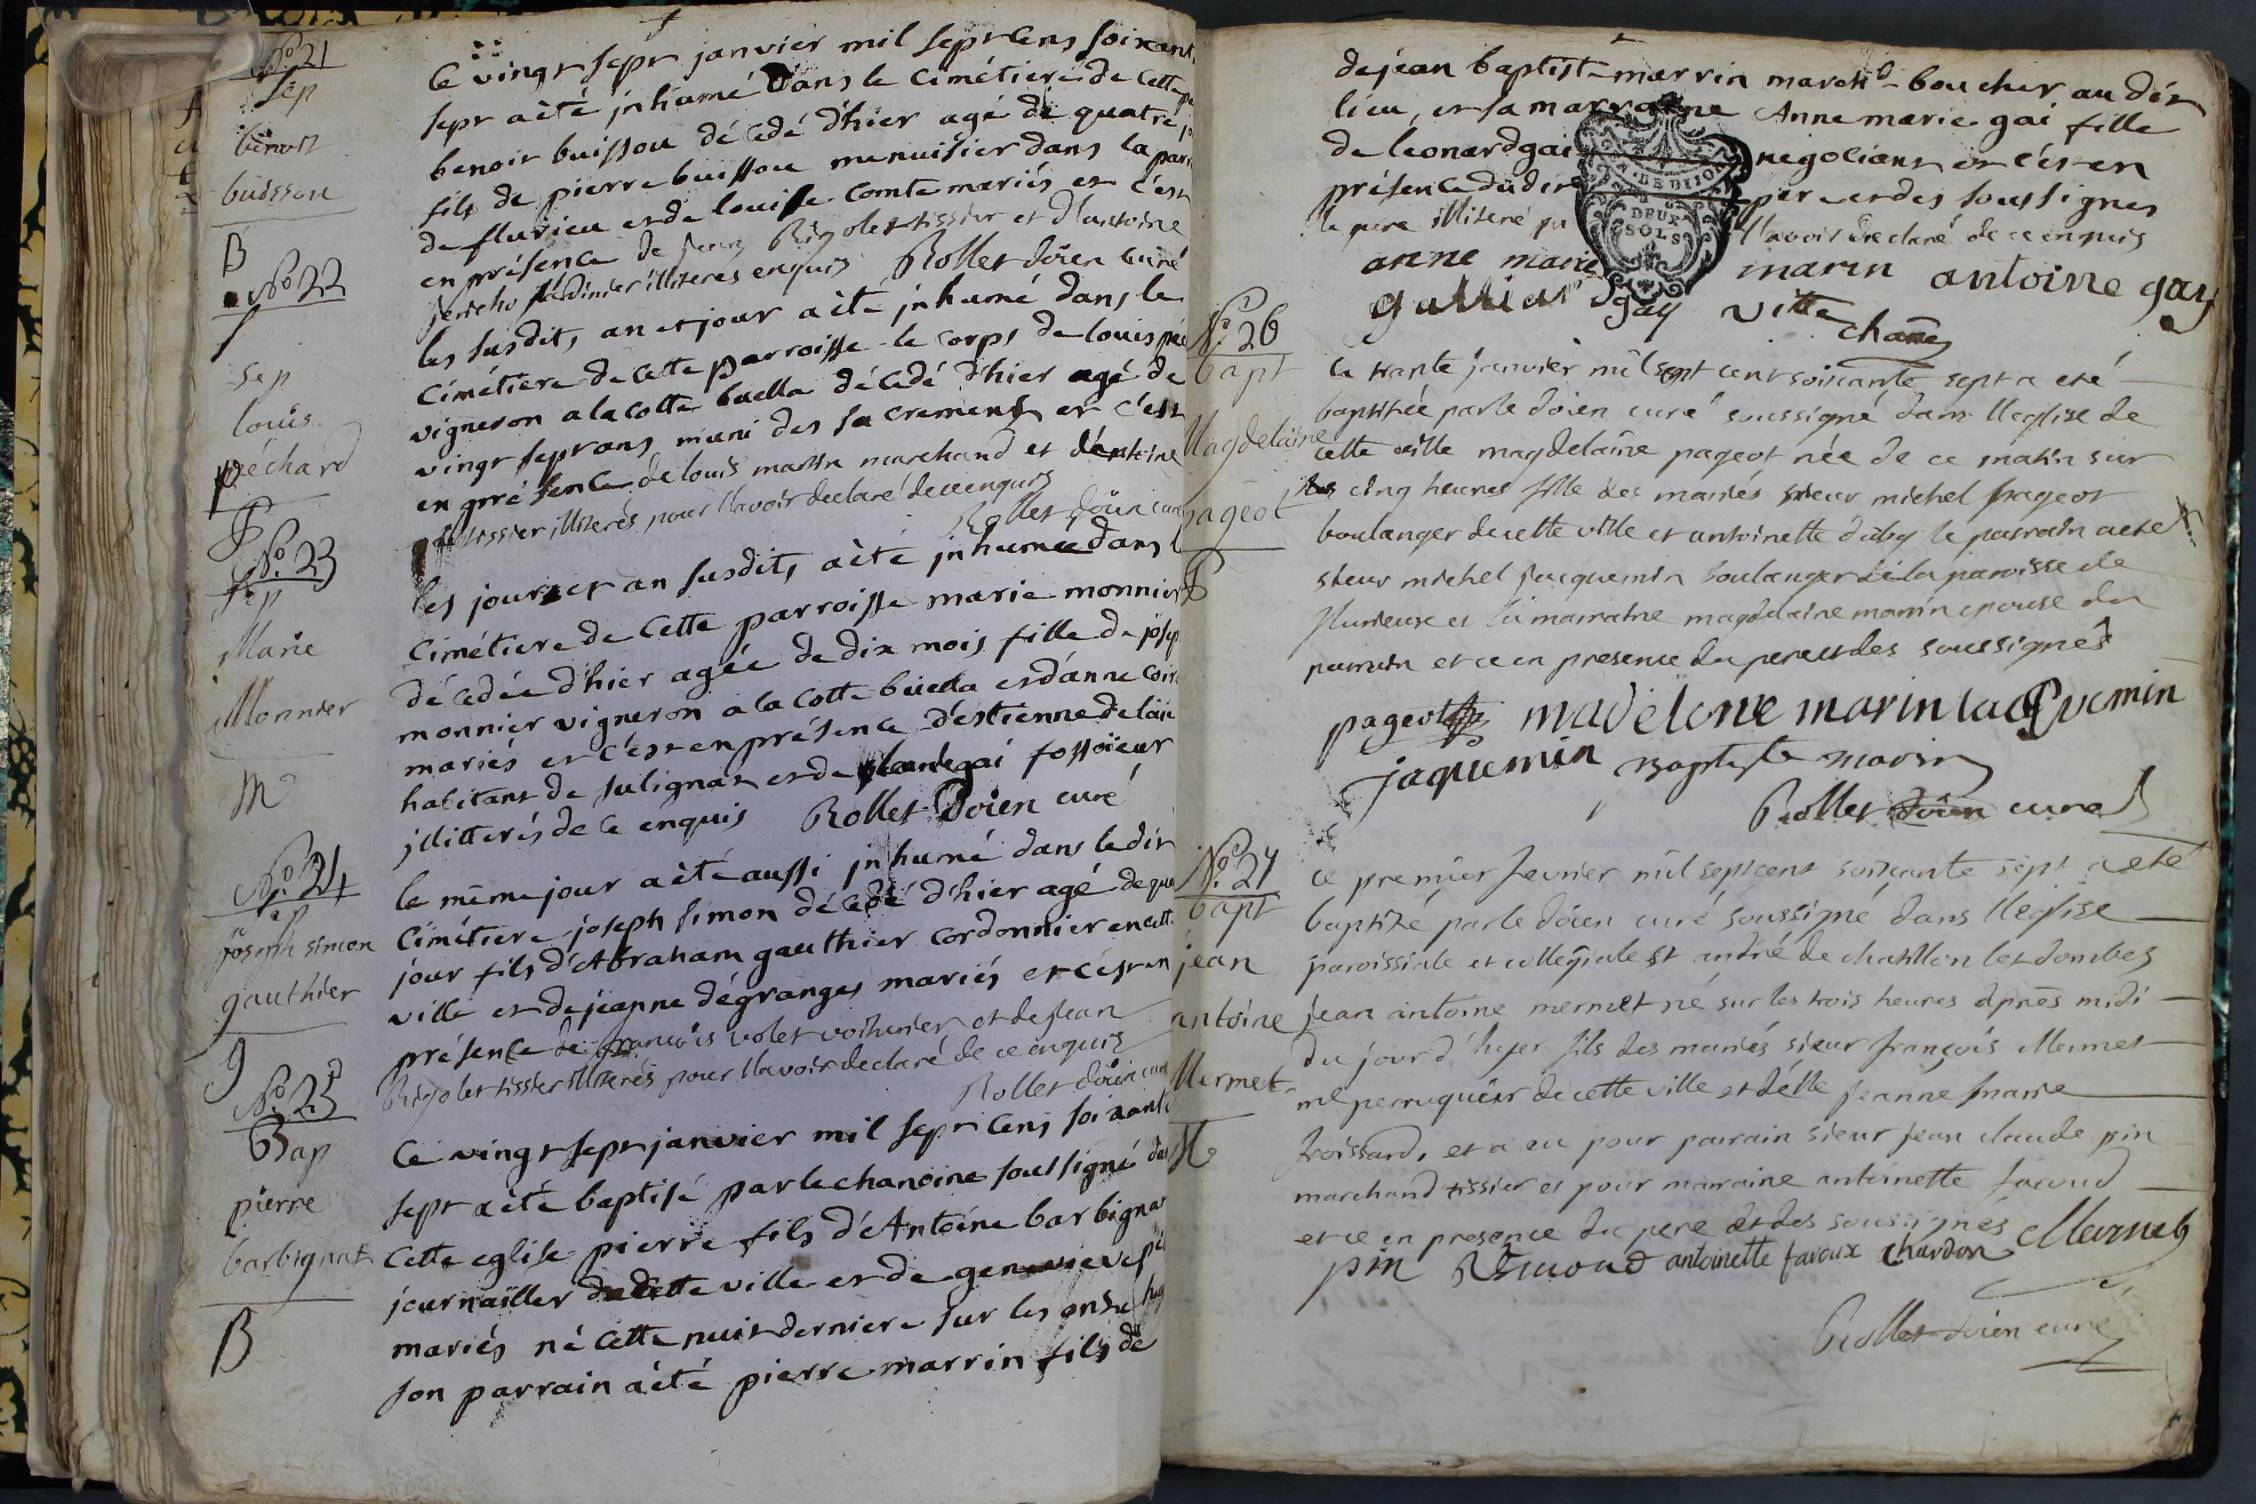 No 21
Sep
benoit
buisson
B
Ce vingt sept janvier mil sept cens soixant
sept a été jnhumé dans le cimétiere de cette
benoit buissou décédé d'hier agé de quatre
fils de pierre buissou menuisier dans la par
de flurieu et de louise comte mariés et c'est
en présence de jean Rigolet tissier et d'antoine
jericho jardinier illiterés enquis Rollet doïen curé
No 22
Sep
louïs
péchard
P
les susdits an et jour a été jnhumé dans le
cimétiere de cette parroisse le corps de louis pe
vigneron a la cotte buella décédé d'hier agé de
vingt sept ans muni des sacremens et c'est
en présence de louis martin marchand et d'antoine
tissier illiterés pour l'avoir declaré de ce enquis
Rollet doïen cure
No 23
Sep
Marie
Monnier
M
les jour et an susdits a été jnhumée dans l
cimétiere de cette parroisse marie monnier
décédée d'hier agée de dix mois fille de josep
monnier vigneron a la cotte buella et d'anne
mariés et c'est en présence d'estienne
habitant de sulignat et de gai fossoïeur
jllitterés de ce enquis Rollet Doïen curé
No 24
Sep
joseph simon
gauthier
g
le même jour a été aussi jnhumé dans le dit
cimétiere joseph simon décédé d'hier agé de
jour fils d'Abraham gauthier cordonnier en cette
ville et de jeanne dégranges mariés et c'est en
présence de françois volet voiturier et de jean
Rigolet tissier illiterés pour l'avoir declaré de ce enquis
Rollet doïen cure
No 25
Bap
pierre
barbignat
B
Ce vingt sept janvier mil sept cens soixante
sept a été baptisé par le chanoine soussigné da
cette eglise pierre fils d'Antoine barbignat
journaïller de cette ville et de genevieve
mariés né cette nuit derniere sur les onze
son parrain a été pierre marrin fils de
de jean baptiste marrin march^d boucher au dit
lieu, et sa marraine Anne marie gai fille
de leonard gai negociant et c'est en
présence du dit pere et des soussignes
le pere illiteré pr l'avoir declaré de ce enquis
DE DIJON
DEUX
SOLS
anne marie marin antoine gay
gay vitte
chane
No 26
bapt
Magdelaine
pageot
P
Ce trante janvier mil sept cent soixante sept a eté
baptisée par le doïen curé soussigné dans l'eglise de
cette ville magdelaine pageot née de ce matin sur
les cinq heures fille des mariés sieur michel pageot
boulanger de cette ville et antoinette duby le parrain a eté
sieur michel jacquemin boulanger de la paroisse de
flurieux et la marraine magdelaine marin epouse du
parrain et ce en presence du pere et des soussignés
pageot madelene marin iacquemin
jaquemin Baptiste marin
Rollet doïen curé
No 27
bapt
jean
antoine
Mermet
M
Ce premier fevrier mil sept cent soixante sept a eté
baptizé par le doïen curé soussigné dans l'eglise
paroissiale et collegiale st andré de chatillon les dombes
jean antoine mermet né sur les trois heures apres midi
du jour d'hyer fils des mariés sieur françois Mermet
me perruquier de cette ville et d'elle jeanne marie
froissard, et a eu pour parain sieur jean claude pin
marchand tissier et pour maraine antoinette
et ce en presence du pere et des soussignés
pin antoinette favoux chardon Mermet
Rollet doïen curé